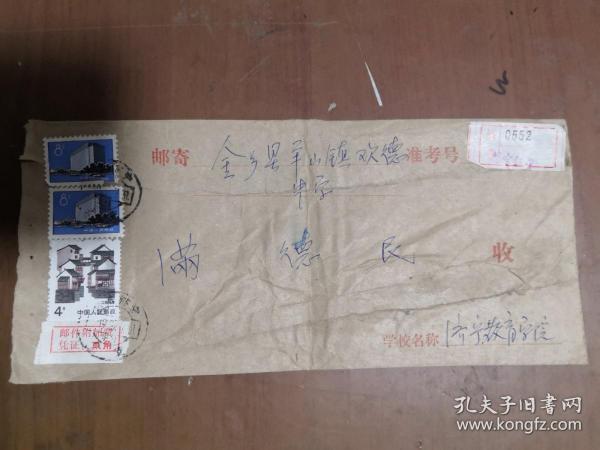 8分
8分
4分
中国人民邮政
邮件附加费
凭证 贰角
0552
邮寄 金乡县羊山镇欢德 准考号
中学
满 德 民 收
学校名称 济宁教育学院
孔夫子旧书网
www.kongfz.com